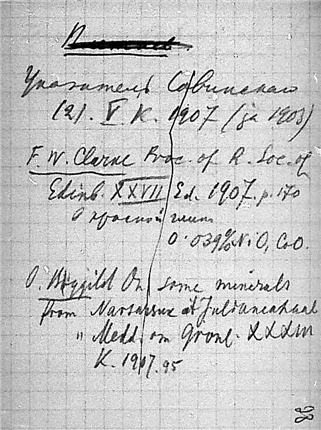 Указатель Савинского
(2). V. К. 1907 (за 1903)
F. W. Clarke Proc. of R. Soc. of
Edinb. XXVII Ed. 1907. p. 170
О красной глине
0.039% NiO, CoO.
O. Bøggild On some minerals
from Narsarsuk at Julianehaab
Medd. om Gronl. XXXIII
K. 1907. 95
98